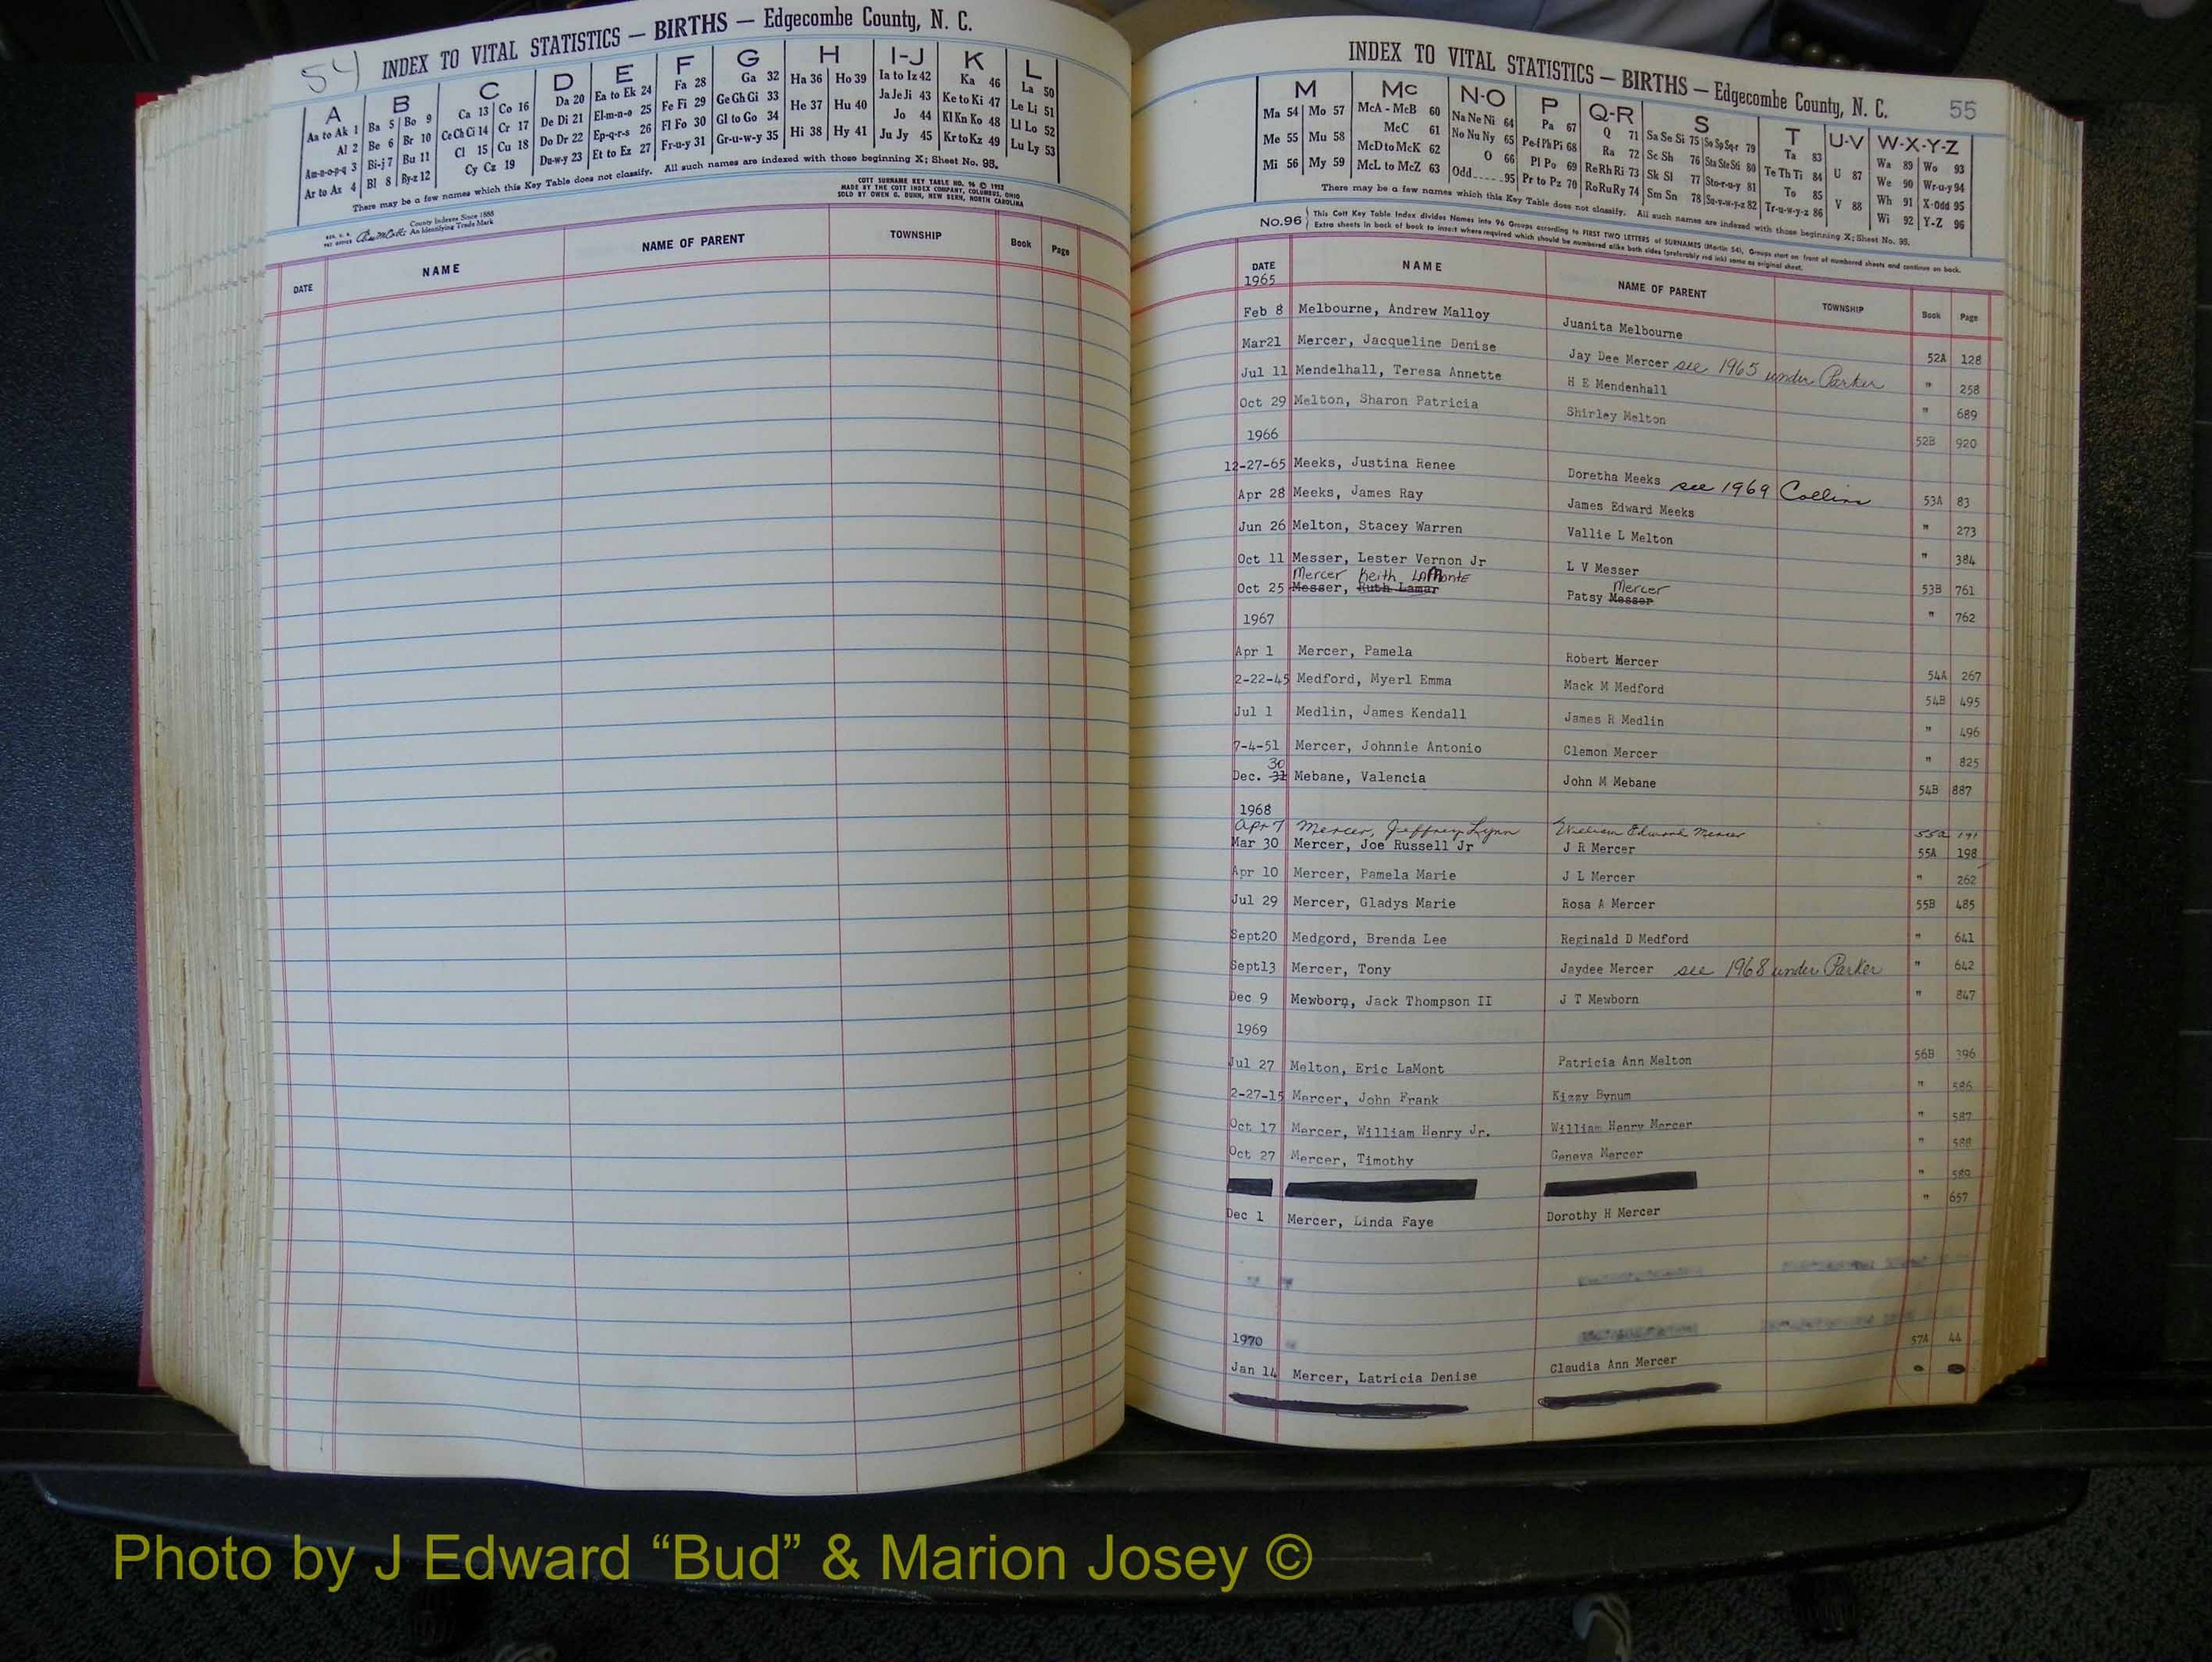 54
INDEX TO VITAL STATISTICS — BIRTHS — Edgecombe County, N. C.
A B C D E F G H I-J K L
Aa to Ak 1 Ba 5 Bo 9 Ca 13 Co 16 Da 20 Ea to Ek 24 Fa 28 Ga 32 Ha 36 Ho 39 Ia to Iz 42 Ka 46 La 50
Al 2 Be 6 Br 10 Ce Ch Ci 14 Cr 17 De Di 21 El-m-n-o 25 Fe Fi 29 Ge Gh Gi 33 He 37 Hu 40 Ja Je Ji 43 Ke to Ki 47 Le Li 51
Am-n-o-p-q 3 Bi-j 7 Bu 11 Cl 15 Cu 18 Do Dr 22 Ep-q-r-s 26 Fl Fo 30 Gl to Go 34 Hi 38 Hy 41 Jo 44 Kl Kn Ko 48 Ll Lo 52
Ar to Az 4 Bl 8 By-z 12 Cy Cz 19 Du-w-y 23 Et to Ez 27 Fr-u-y 31 Gr-u-w-y 35 Ju Jy 45 Kr to Kz 49 Lu Ly 53
There may be a few names which this Key Table does not classify. All such names are indexed with those beginning X; Sheet No. 95.
COTT SURNAME KEY TABLE NO. 96 © 1953
MADE BY THE COTT INDEX COMPANY, COLUMBUS, OHIO
SOLD BY OWEN G. DUNN, NEW BERN, NORTH CAROLINA
County Indexes Since 1888
An Identifying Trade Mark
DATE NAME NAME OF PARENT TOWNSHIP Book Page
INDEX TO VITAL STATISTICS — BIRTHS — Edgecombe County, N. C. 55
M Mc N-O P Q-R S T U-V W-X-Y-Z
Ma 54 Mo 57 McA - McB 60 Na Ne Ni 64 Pa 67 Q 71 Sa Se Si 75 So Sp Sq-r 79 Ta 83 U 87 Wa 89 Wo 93
Me 55 Mu 58 McC 61 No Nu Ny 65 Pe-f Ph Pi 68 Ra 72 Sc Sh 76 Sta Ste Sti 80 Te Th Ti 84 V 88 We 90 Wr-u-y 94
Mi 56 My 59 McD to McK 62 O 66 Pl Po 69 Re Rh Ri 73 Sk Sl 77 Sto-r-u-y 81 To 85 Wh 91 X-Odd 95
McL to McZ 63 Odd 95 Pr to Pz 70 Ro Ru Ry 74 Sm Sn 78 Su-v-w-y-z 82 Tr-u-w-y-z 86 Wi 92 Y-Z 96
There may be a few names which this Key Table does not classify. All such names are indexed with those beginning X; Sheet No. 95.
No.96 This Cott Key Table Index divides Names into 96 Groups according to FIRST TWO LETTERS of SURNAMES (Martin 54). Groups start on front of numbered sheets and continue on back.
Extra sheets in back of book to insert where required which should be numbered alike both sides (preferably red ink) same as original sheet.
DATE NAME NAME OF PARENT TOWNSHIP Book Page
1965
Feb 8 Melbourne, Andrew Malloy Juanita Melbourne 52A 128
Mar21 Mercer, Jacqueline Denise Jay Dee Mercer see 1965 under Parker " 258
Jul 11 Mendelhall, Teresa Annette H E Mendenhall " 689
Oct 29 Melton, Sharon Patricia Shirley Melton 52B 920
1966
12-27-65 Meeks, Justina Renee Doretha Meeks see 1969 Collins 53A 83
Apr 28 Meeks, James Ray James Edward Meeks " 273
Jun 26 Melton, Stacey Warren Vallie L Melton " 384
Oct 11 Messer, Lester Vernon Jr L V Messer 53B 761
Mercer Keith LaMonte Mercer
Oct 25 Messer, Ruth Lamar Patsy Messer " 762
1967
Apr 1 Mercer, Pamela Robert Mercer 54A 267
2-22-45 Medford, Myerl Emma Mack M Medford 54B 495
Jul 1 Medlin, James Kendall James R Medlin " 496
7-4-51 Mercer, Johnnie Antonio Clemon Mercer " 825
30
Dec. 31 Mebane, Valencia John M Mebane 54B 887
1968
Apr 7 Mercer, Jeffrey Lynn William Edward Mercer 55a 191
Mar 30 Mercer, Joe Russell Jr J R Mercer 55A 198
Apr 10 Mercer, Pamela Marie J L Mercer " 262
Jul 29 Mercer, Gladys Marie Rosa A Mercer 55B 485
Sept20 Medgord, Brenda Lee Reginald D Medford " 641
Sept13 Mercer, Tony Jaydee Mercer see 1968 under Parker " 642
Dec 9 Mewborn, Jack Thompson II J T Mewborn " 847
1969
Jul 27 Melton, Eric LaMont Patricia Ann Melton 56B 396
2-27-15 Mercer, John Frank Kizzy Bynum " 586
Oct 17 Mercer, William Henry Jr. William Henry Mercer " 587
Oct 27 Mercer, Timothy Geneva Mercer " 588
" 589
Dec 1 Mercer, Linda Faye Dorothy H Mercer " 657
1970
Jan 14 Mercer, Latricia Denise Claudia Ann Mercer 57A 44
Photo by J Edward “Bud” & Marion Josey ©